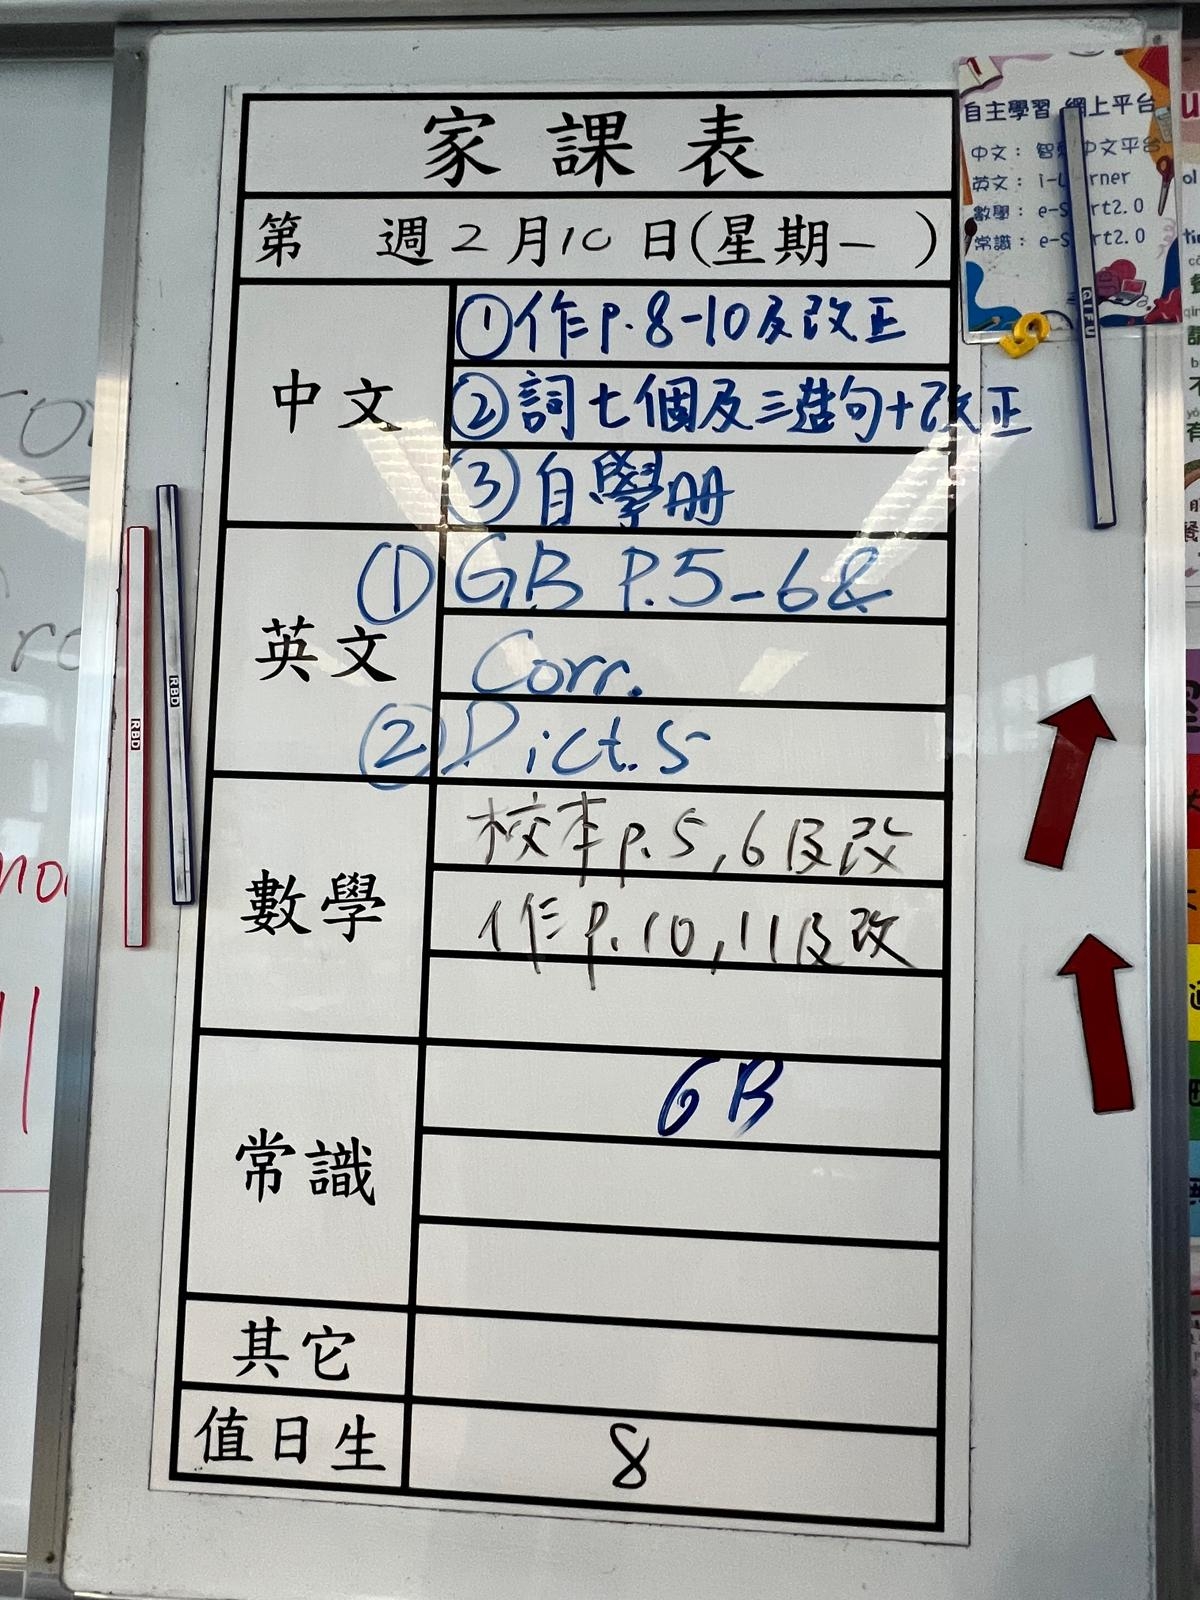 家課表
第 週2月10日(星期一 )
中文
①作P.8-10及改正
②詞七個及三造句+改正
③自學册
英文
①GB P.5-6&
Corr.
②Dict.5
數學
校本p.5,6及改
作p.10,11及改
常識
GB
其它
值日生
8
自主學習 網上平台
中文： 中文平台
英文：
數學：
常識：
RBD
RBD
GIFU